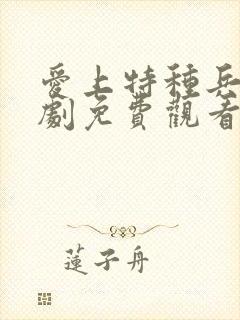 愛上特種兵
劇免費觀看
蓮子舟